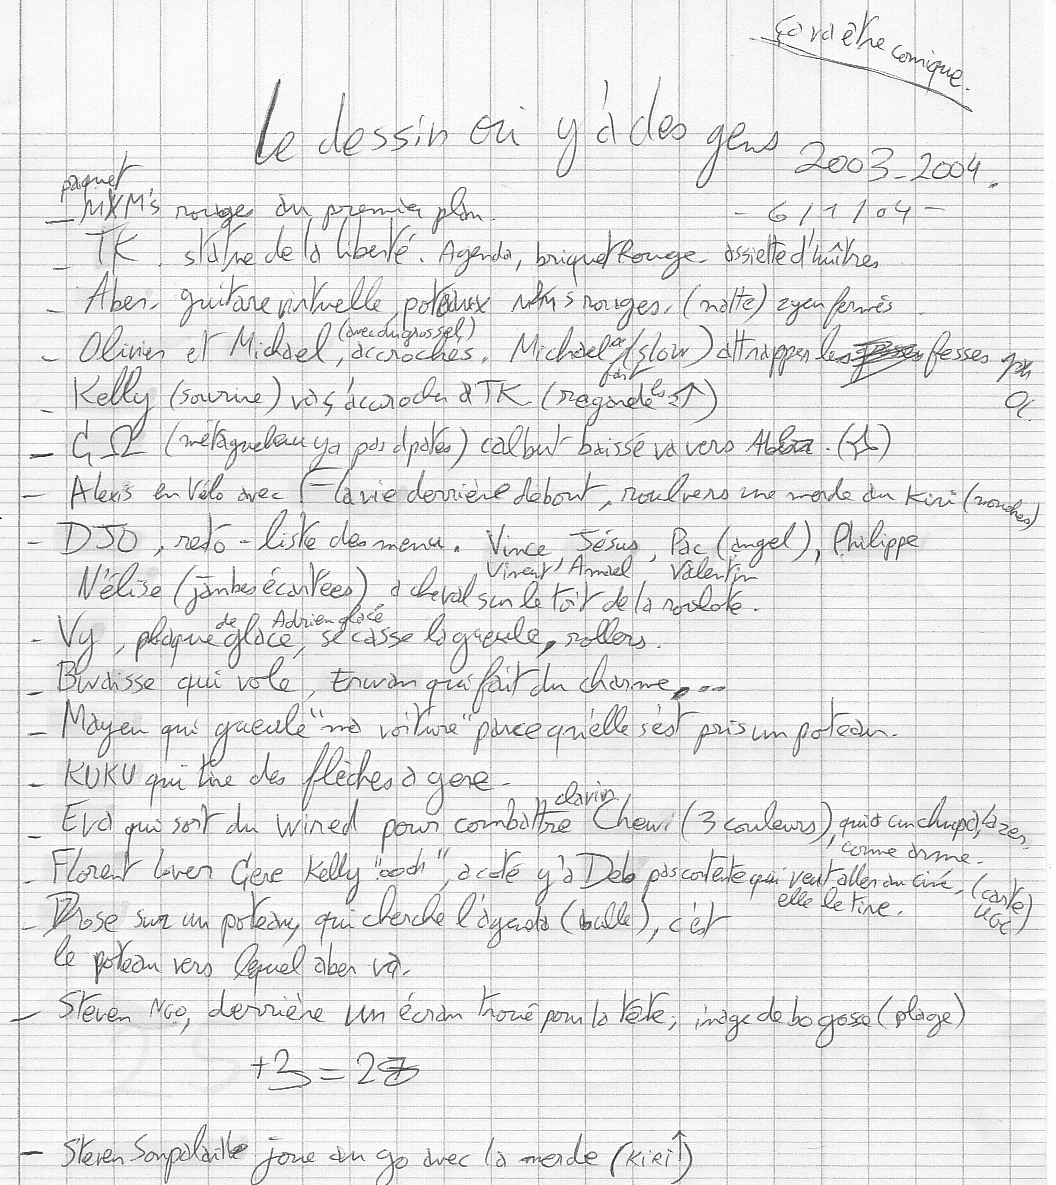 ça va être comique.
Le dessin où y'à des gens 2003-2004.
paquet
- M&M's rouges au premier plan. - 6/1/04 -
- TK statue de la liberté. Agenda, briquet Rouge. assiette d'huîtres
- Aber. guitare virtuelle, poteaux M&M's rouges. (natte) yeux fermés
(avec du gros sel)
- Olivier et Michael, accrochés. Michael (slow) attraper les fesses
fait
- Kelly (sourire) va s'accrocher à TK. (regarde les ↑)
- GΩ (y a pas d'pates) calbut baissé va vers
- Alexis en Vélo avec Flavie derrière debout, roul vers une merde du Kiri (mouches)
- DJO, resto - liste des menu. Vince, Jésus, Pac (angel), Philippe
Vincent Valentin
N'élise (jambes écartées), à cheval sur le toit de la roulote.
de Adrien glacé
- Vy, plaque glace, se casse la gueule, rollers.
- qui vole, Erwan qui fait du charme, ...
- Mayeu qui gueule "ma voiture" parce qu'elle s'est pris un poteau.
- KUKU qui tire des flèches à gere.
clavier
- Eva qui sort du Wired pour combattre Chewi (3 couleurs), qui a un chupa
comme arme.
- Florent lover Gere Kelly "oooh", a coté y'à Deb pas contente qui veut aller au ciné, (carte)
elle le tire. UGC
- sur un poteau, qui cherche l'agenda (bulle), c'est
le poteau vers lequel aber va.
- Steven NGO, derrière un écran troué pour la tête, image de bo gosse (plage)
+3 = 28
- Steven joue au go avec la merde (KIRI ↑)